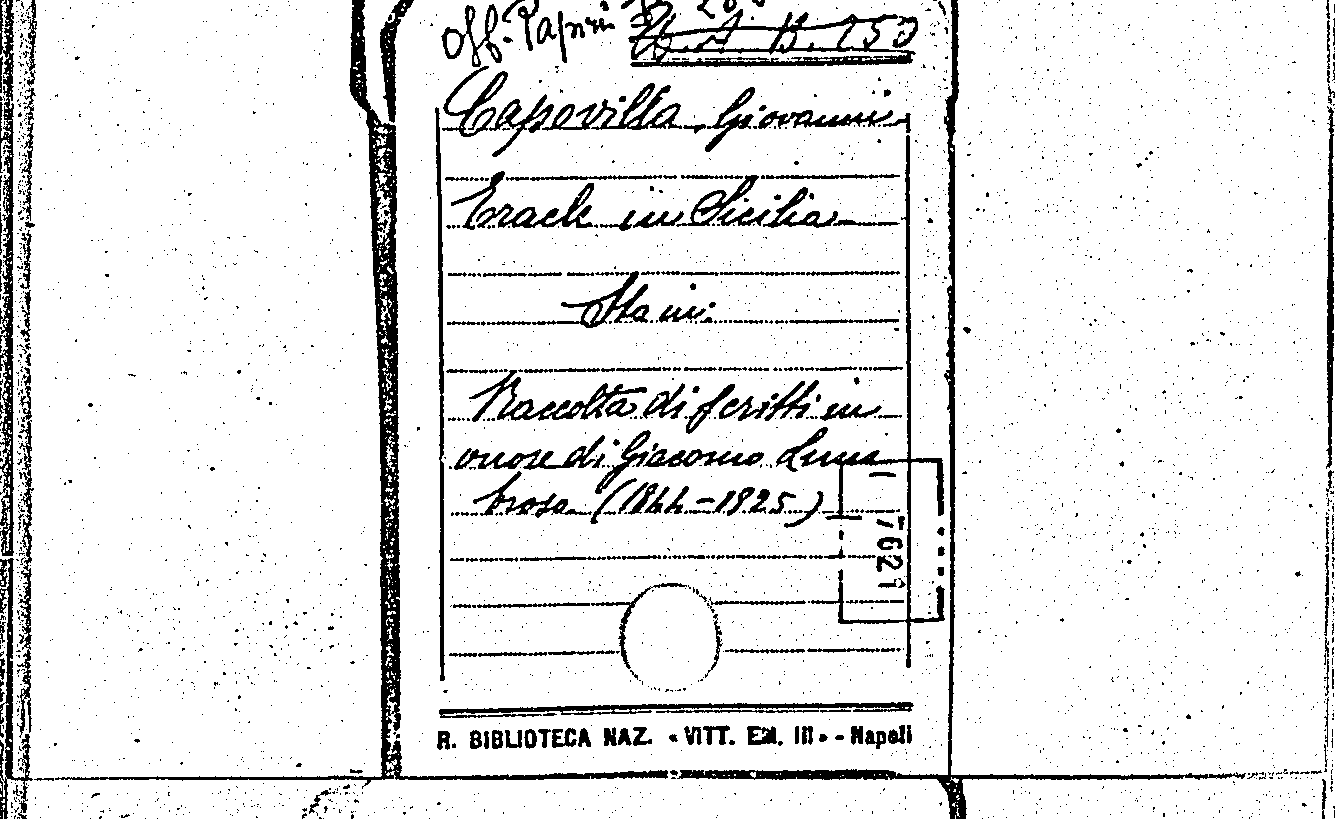 Off. Papiri
H. A. B. 250
Capovilla, Giovanni
Eracle in Sicilia
Sta in:
Raccolta di scritti in
onore di Giacomo Lum
broso (1844-1925)
7621
R. BIBLIOTECA NAZ. « VITT. EM. III » - Napoli